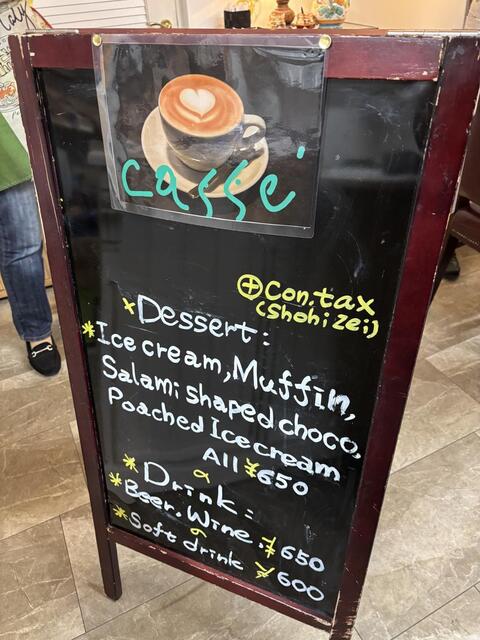 caffe'
⊕Con.tax
(Shohi Zei)
*Dessert:
*Ice cream, Muffin,
Salami shaped choco,
Poached Ice cream
All ¥650
*Drink:
*Beer. Wine. ¥650
*Soft drink ¥600